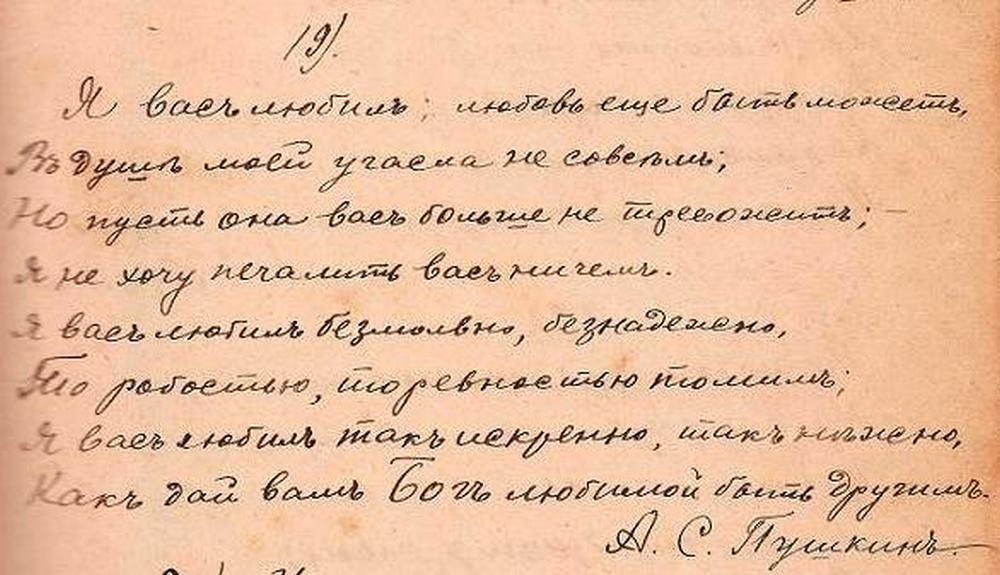 19).
Я васъ любилъ; любовь еще быть можетъ,
Въ душѣ моей угасла не совсѣмъ;
Но пусть она васъ больше не тревожитъ; —
Я не хочу печалить васъ ничемъ.
Я васъ любилъ безмолвно, безнадежно,
То робостью, то ревностью томимъ;
Я васъ любилъ такъ искренно, такъ нѣжно,
Какъ дай вамъ Богъ любимой быть другимъ.
А. С. Пушкинъ.